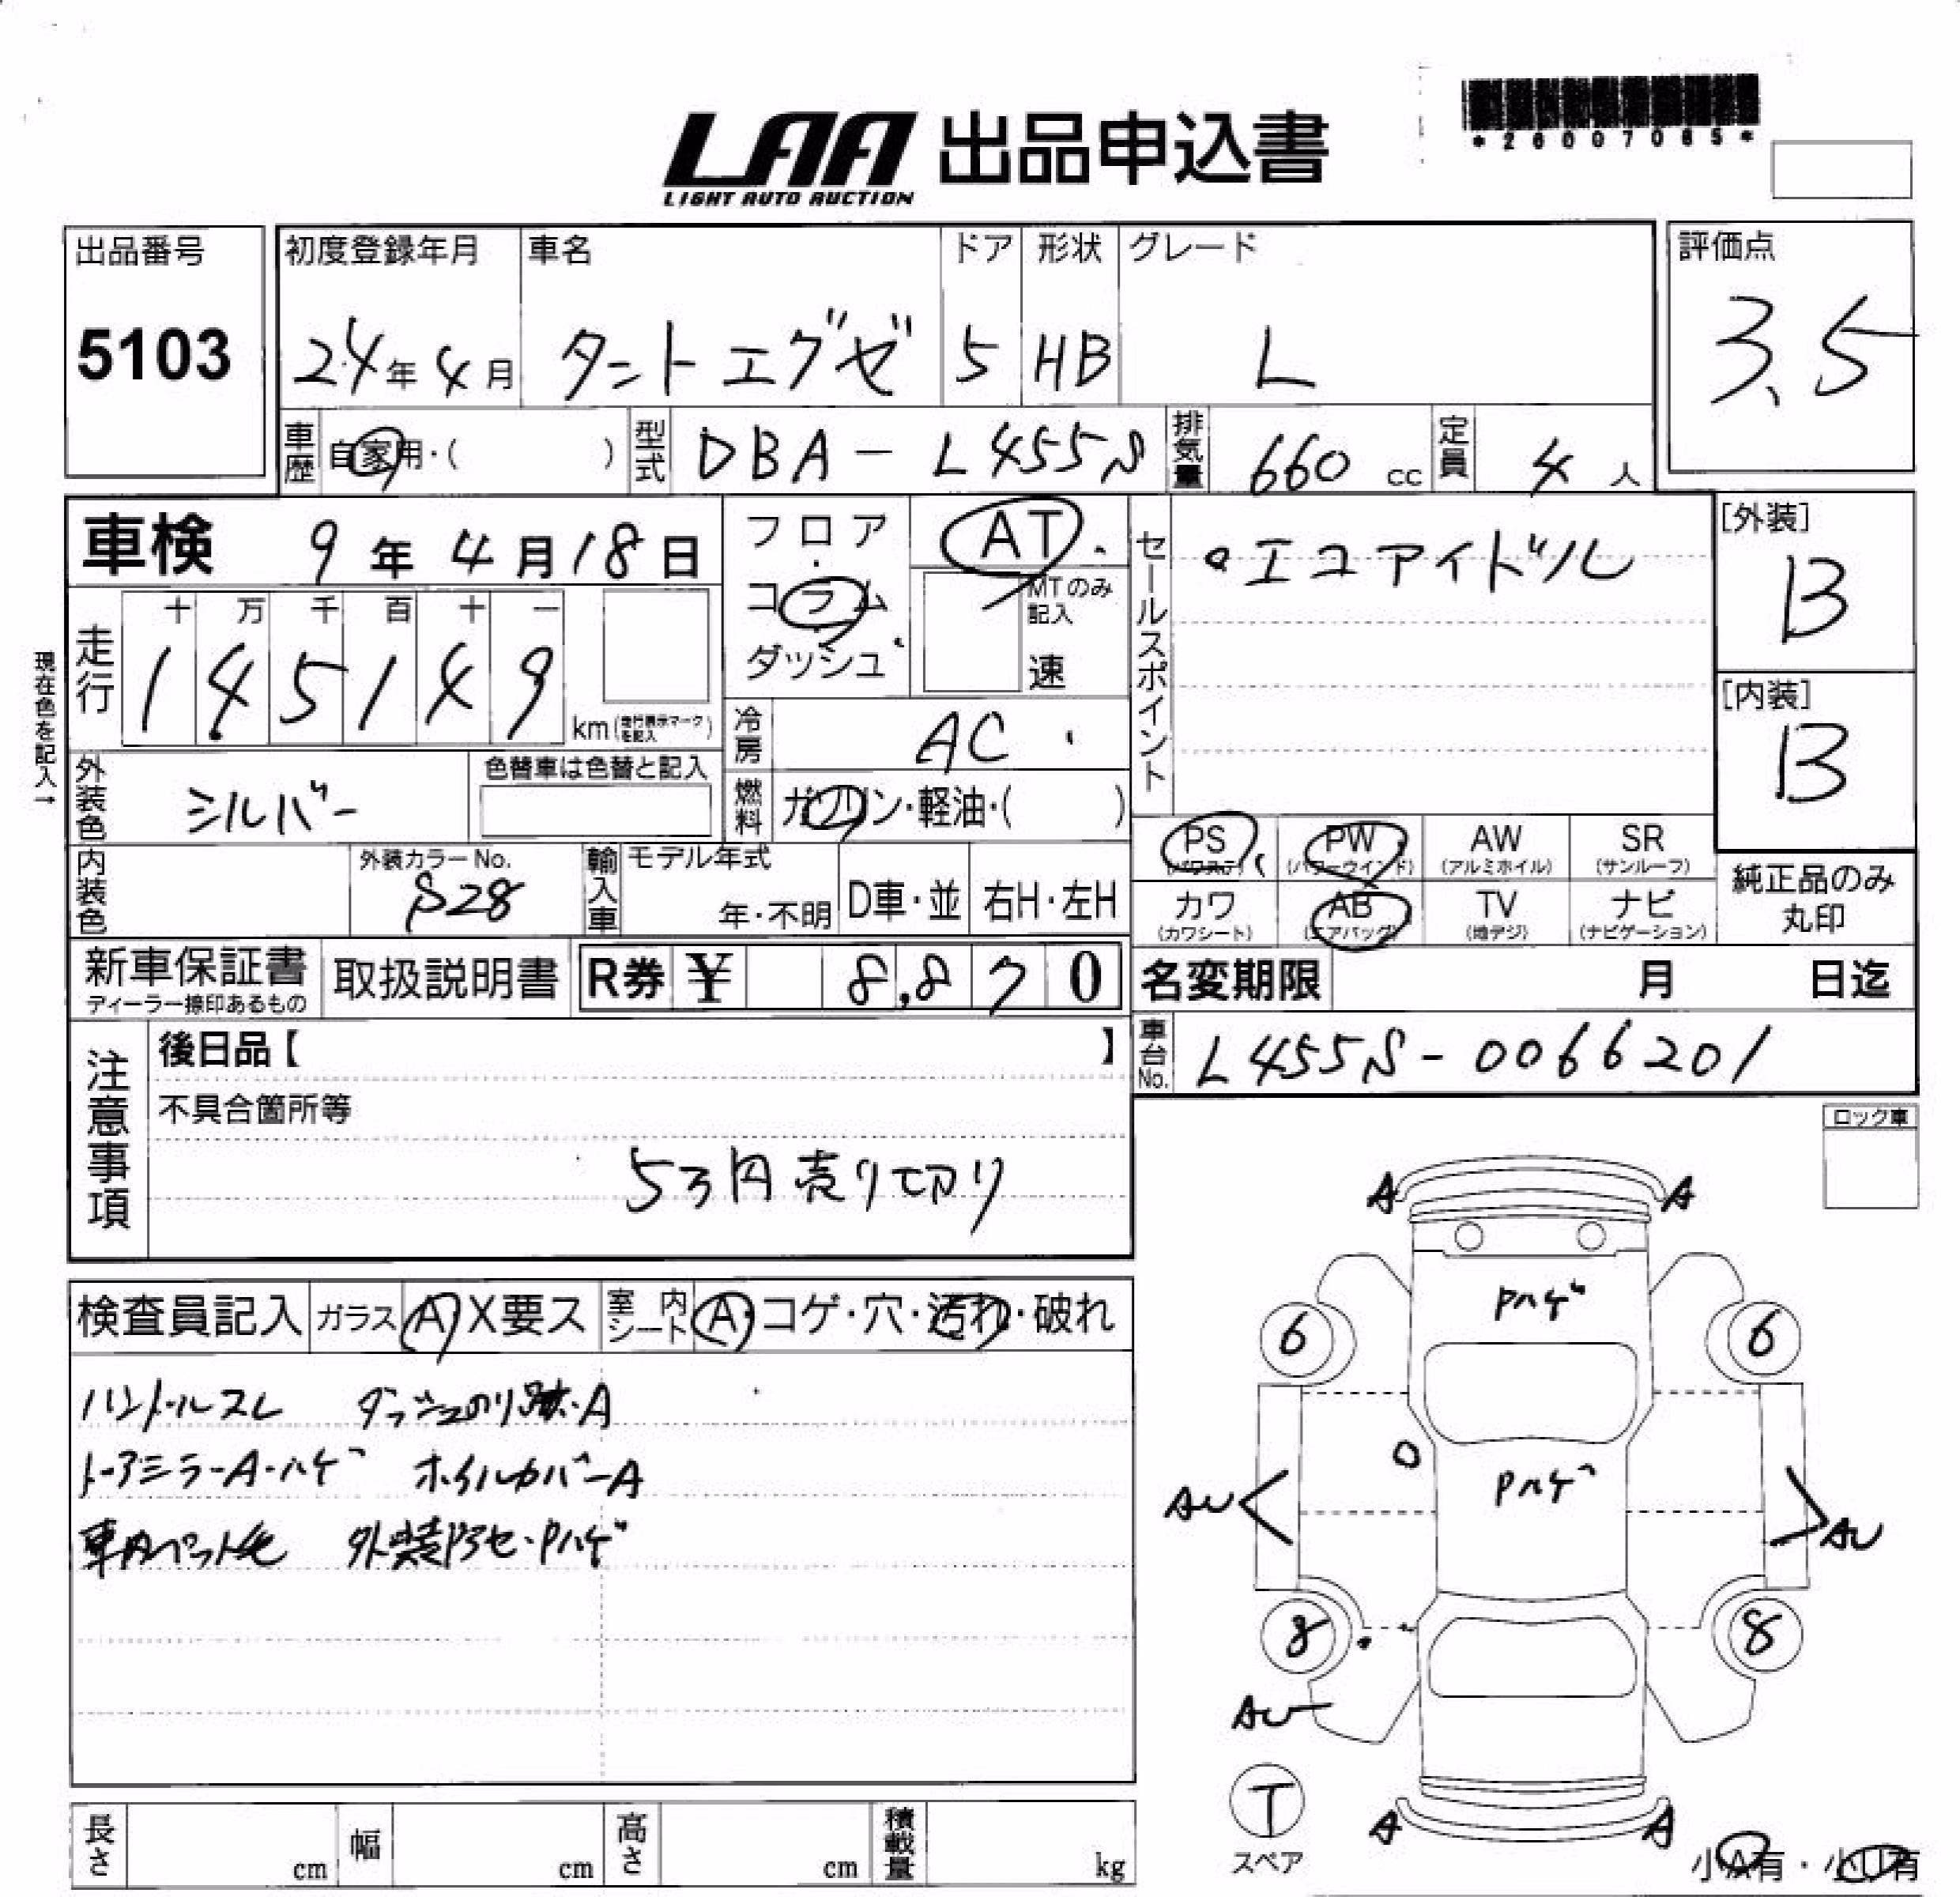 LAA 出品申込書
LIGHT AUTO AUCTION
*26007065*
出品番号
5103
初度登録年月
24年4月
車名
タントエグゼ
ドア
5
形状
HB
グレード
L
評価点
3.5
車歴
自家用・( )
型式
DBA-L455S
排気量
660 cc
定員
4 人
車検 9年4月18日
フロア・コラム・ダッシュ
AT
MTのみ記入
速
セールスポイント
・エコアイドル
[外装]
B
[内装]
B
現在色を記入→
走行
十 万 千 百 十 一
1 4 5 1 4 9
km(走行表示マークを記入)
冷房
AC
外装色
シルバー
色替車は色替と記入
燃料
ガソリン・軽油・( )
PS
(パワステ)
PW
(パワーウインド)
AW
(アルミホイル)
SR
(サンルーフ)
内装色
外装カラーNo.
S28
輸入車
モデル年式
年・不明
D車・並
右H・左H
カワ
(カワシート)
AB
(エアバッグ)
TV
(地デジ)
ナビ
(ナビゲーション)
純正品のみ
丸印
新車保証書
ディーラー捺印あるもの
取扱説明書
R券 ¥ 8,870
名変期限 月 日迄
注意事項
後日品【 】
不具合箇所等
5万円売り切り
車台No.
L455S-0066201
ロック車
検査員記入
ガラス
A X要ス
室内シート
A・コゲ・穴・汚れ・破れ
ハンドルスレ ダッシュのり跡・A
ドアミラーA・ハゲ ホイルカバーA
車内ペット毛 外装ボセ・Pハゲ
A A
Pハゲ
6 6
Pハゲ
AU AU
8 8
AU
T
スペア
A A
小A有・小U有
長さ cm
幅 cm
高さ cm
積載量 kg